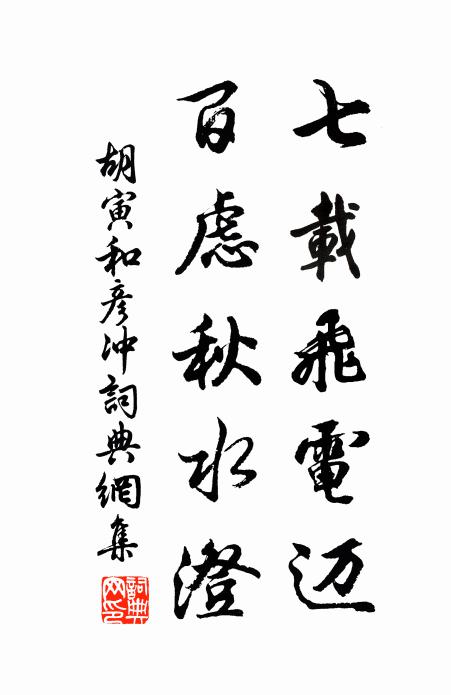 七載飛電迈
百慮秋水澄
胡寅和彦冲詞典網集
詞典網印